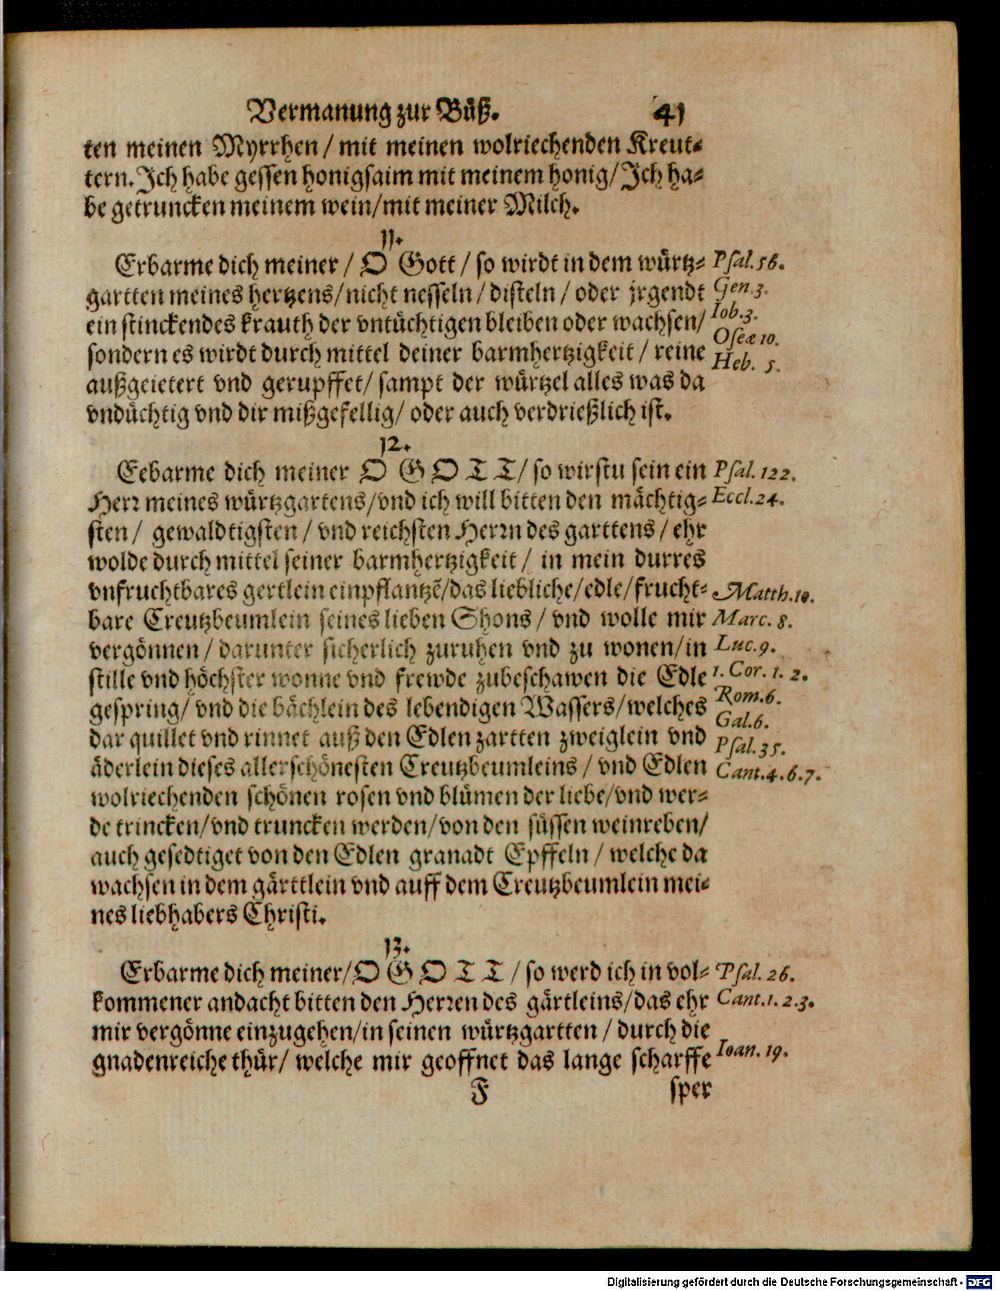 Vermanung zur Bůß. 41
ten meinen Myrrhen / mit meinen wolriechenden Kreut⸗
tern. Ich habe gessen honigsaim mit meinem honig/ Ich ha⸗
be getruncken meinem wein/mit meiner Milch.
11.
Erbarme dich meiner / O Gott / so wirdt in dem würtz⸗ Psal. 56.
gartten meines hertzens/nicht nesseln / disteln / oder jrgendt Gen. 3.
ein stinckendes krauth der vntüchtigen bleiben oder wachsen/ Iob. 3.
Oseæ 10.
sondern es wirdt durch mittel deiner barmhertzigkeit / reine Heb. 5.
außgeietert vnd gerupffet/ sampt der würtzel alles was da
vndüchtig vnd dir mißgefellig/ oder auch verdrießlich ist.
12.
Eebarme dich meiner O GOTT/ so wirstu sein ein Psal. 122.
Herr meines würtzgartens/vnd ich will bitten den mächtig⸗ Eccl. 24.
sten / gewaldtigsten / vnd reichsten Herrn des garttens / ehr
wolde durch mittel seiner barmhertzigkeit / in mein durres
vnfruchtbares gertlein einpflantzē/das liebliche/edle/frucht⸗ Matth. 10.
bare Creutzbeumlein seines lieben Shons / vnd wolle mir Marc. 8.
vergönnen / darunter sicherlich zuruhen vnd zu wonen/in Luc. 9.
stille vnd höchster wonne vnd frewde zubeschawen die Edle 1. Cor. 1. 2.
gespring/ vnd die bächlein des lebendigen Wassers/welches Rom. 6.
Gal. 6.
dar quillet vnd rinnet auß den Edlen zartten zweiglein vnd Psal. 35.
äderlein dieses allerschönesten Creutzbeumleins / vnd Edlen Cant. 4. 6. 7.
wolriechenden schönen rosen vnd blümen der liebe/vnd wer⸗
de trincken/vnd truncken werden/von den süssen weinreben/
auch gesedtiget von den Edlen granadt Epffeln / welche da
wachsen in dem gärttlein vnd auff dem Creutzbeumlein mei⸗
nes liebhabers Christi.
13.
Erbarme dich meiner/O GOTT / so werd ich in vol⸗ Psal. 26.
kommener andacht bitten den Herren des gärtleins/das ehr Cant. 1. 2. 3.
mir vergönne einzugehen/in seinen würtzgartten / durch die
gnadenreiche thür/ welche mir geoffnet das lange scharffe Ioan. 19.
F sper
Digitalisierung gefördert durch die Deutsche Forschungsgemeinschaft - DFG